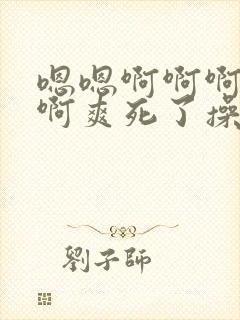 嗯嗯啊啊啊
啊爽死了操
劉子師